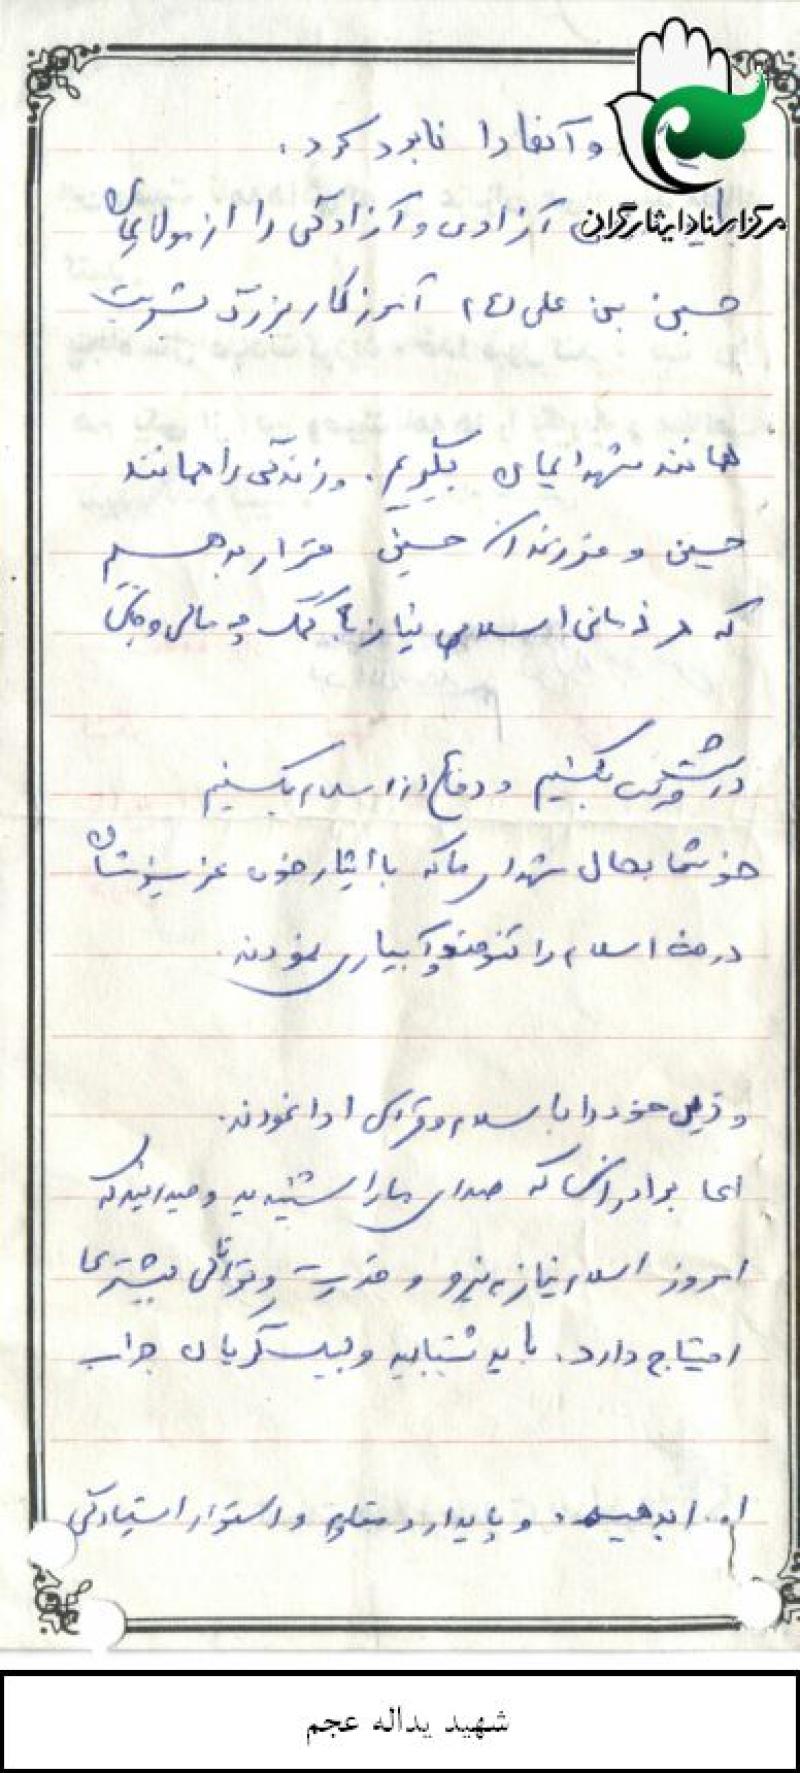 و آنها را نابود کرد.
مرکز اسناد ایثارگران
آزادی و آزادگی را از مولایمان
حسین بن علی (ع) آموزگار بزرگ بشریت
همانند شهدایمان بگیریم. و زندگی را همانند
حسین و فرزندان حسین قرار بدهیم
که هر زمانی اسلام نیاز به کمک چه مالی و جانی
داشت بکنیم و دفاع از اسلام بکنیم
خوشا بحال شهدای ما که با ایثار خون عزیزشان
درخت اسلام را تنومند و آبیاری نمودند.
و دین خود را به اسلام و قرآن ادا نمودند.
اما برادرانی که صدای ما را شنیدید و میدانید که
امروز اسلام نیاز به نیرو و قدرت و توانائی بیشتری
احتیاج دارد. باید بشتابید و لبیک گویان جواب
امام را بدهیم و پایدار و مقاوم و استوار ایستادگی
شهید یداله عجم